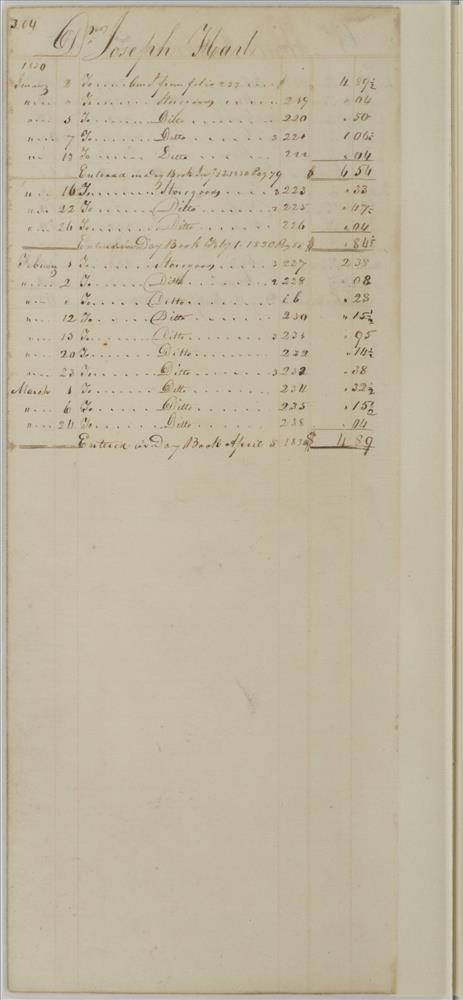 204
Dr. Joseph Hart
1830
January 2 To . . . . . from folio 222 . . . . $ 4 89½
" . . . " To . . . . Storegoods . . . . . . . 219 " 04
" . . . 5 To . . . . Ditto . . . . . . . 220 " 50
" . . . 7 To . . . . Ditto . . . . . . . 221 1 06½
" . . . 12 To . . . . Ditto . . . . . . . 222 " 04
Entered in day Book Jany 12 1830 Pag 79 $ 6 54
" . . 16 To . . . . Storegoods . . . . . 223 " 33
" . . 22 To . . . . Ditto . . . . . . . 225 " 47½
" . . 26 To . . . . Ditto . . . . . . . 226 " 04
Entered in Day Book Feby 1. 1830 Pag $ " 84½
February 1 To . . . . Storegoods . . . . . 227 2 38
" . . . 2 To . . . . Ditto . . . . . . . 228 " 08
" . . . " To . . . . Ditto . . . . . . . ib " 23
" . . . 12 To . . . . Ditto . . . . . . . 230 " 15½
" . . . 13 To . . . . Ditto . . . . . . . 231 " 95
" . . . 20 To . . . . Ditto . . . . . . . 232 " 14½
" . . . 23 To . . . . Ditto . . . . . . . 232 " 38
March 1 To . . . . Ditto . . . . . . . 234 " 32½
" . . . 6 To . . . . Ditto . . . . . . . 235 " 15½
" . . . 24 To . . . . Ditto . . . . . . . 238 " 04
Entered in Day Book April 5 1830 $ 4 89